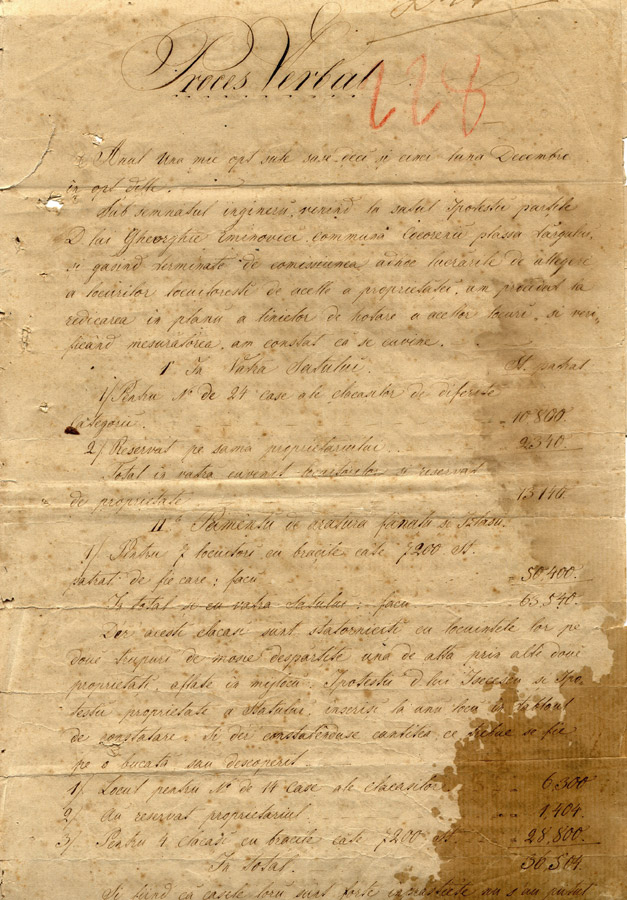 Proces Verbal
228
Anul Una mie opt sute sase-deci si cinci luna Decembre
in opt dille.
Sub semnatul ingineru, venind la satul Ipotesti partile
D lui Gheorghie Eminovici communa Cucorenii plassa Targului,
si gasind terminate de comissiunea adhoc lucrarile de allegere
a locurilor locuitoresti de acelle a proprietatii, am procedat la
redicarea in planu a linielor de hotare a acellor locuri, si veri-
ficand mesuratorea, am constat ca se cuvine.
I° In Vatra Satului. St. patrat
1/ Pentru No de 24 case ale clacasilor de diferite
categorii. 10,800.
2/ Reservat pe sama proprietariului 2340.
Total in vatra cuvenit locuitorilor si reservat
de proprietate 13140.
II° Pamentu de aratura fanatu se Izlasu.
1/ Pentru 7 locuitori cu bracile cate 7200 St.
patrat de fie care; facu 50,400.
In total si cu vatra Satului; facu 63,540.
Der acesti clacasi sunt statorniciti cu locuintele lor pe
doue trupuri de mosie despartite una de alta prin alte doui
proprietati, aflate in mijlocu, Ipotestii d lui si Ipo-
testii proprietate a Statului, inscrisi la unu locu in tabloul
de constatare. Si der constatanduse cantitea ce trebue se fie
pe o bucata sau descoperit.
1/ Locul pentru No de 14 case ale clacasilor 6,300
2/ Au reservat proprietariul 1,404.
3/ Pentru 4 clacasi cu bracile cate 7200 St. 28,800.
In total. 36,504.
Si fiind ca casele loru sunt forte imprastiete nu s'au putut